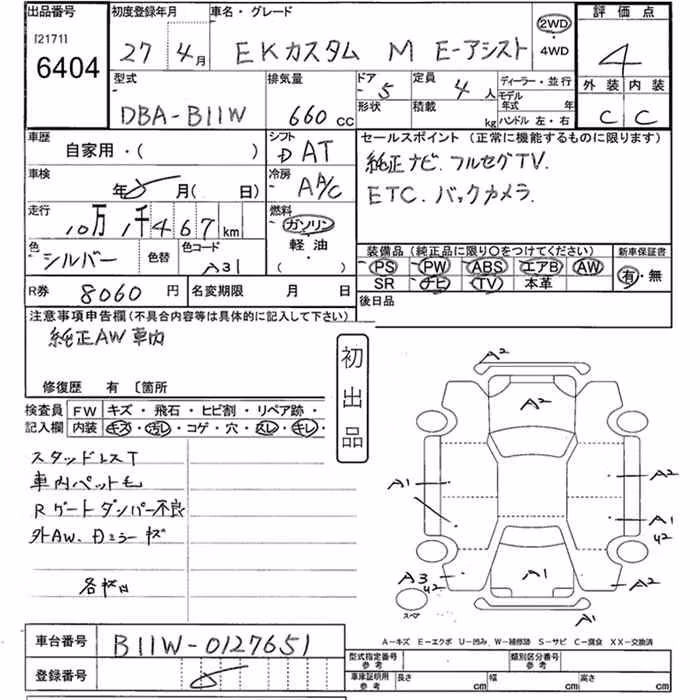 出品番号 初度登録年月 車名・グレード 評価点
[2171]
6404 27年4月 EKカスタム M E-アシスト 2WD・4WD 4
型式 排気量 ドア 定員 ディーラー・並行 外装 内装
DBA-B11W 660cc 5 4人 モデル年式 年 C C
形状 積載 kg ハンドル 左・右
車歴 シフト セールスポイント(正常に機能するものに限ります)
自家用・( ) D AT 純正ナビ. フルセグTV.
車検 年 月(日) 冷房 AA/C ETC. バックカメラ.
走行 10万1千467km 燃料 ガソリン
軽油・( )
色 シルバー 色替 色コード A31
装備品(純正品に限り○をつけてください) 新車保証書
PS PW ABS エアB AW 有・無
SR ナビ TV 本革
R券 8060円 名変期限 月 日 後日品
注意事項申告欄(不具合内容等は具体的に記入して下さい)
純正AW車内
初出品
修復歴 有 〔箇所
検査員 FW キズ・飛石・ヒビ割・リペア跡・
記入欄 内装 キズ・汚レ・コゲ・穴・スレ・キレ・
スタッドレスT
車内ペット毛
Rゲートダンパー不良
社外AW. Dミラーキズ
A2
A2
A1 A2
A1
U2
A3 U2 A1 A2
スペア A1
A-キズ E-エクボ U-凹み W-補修跡 S-サビ C-腐食 XX-交換済
車台番号 B11W-0127651
型式指定番号 参考 類別区分番号 参考
登録番号
車庫証明用 参考 長さ cm 幅 cm 高さ cm